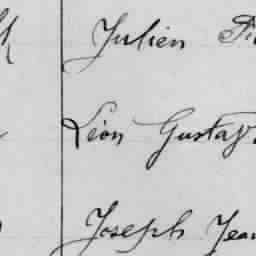 Julien
Léon Gustav
Joseph Jean